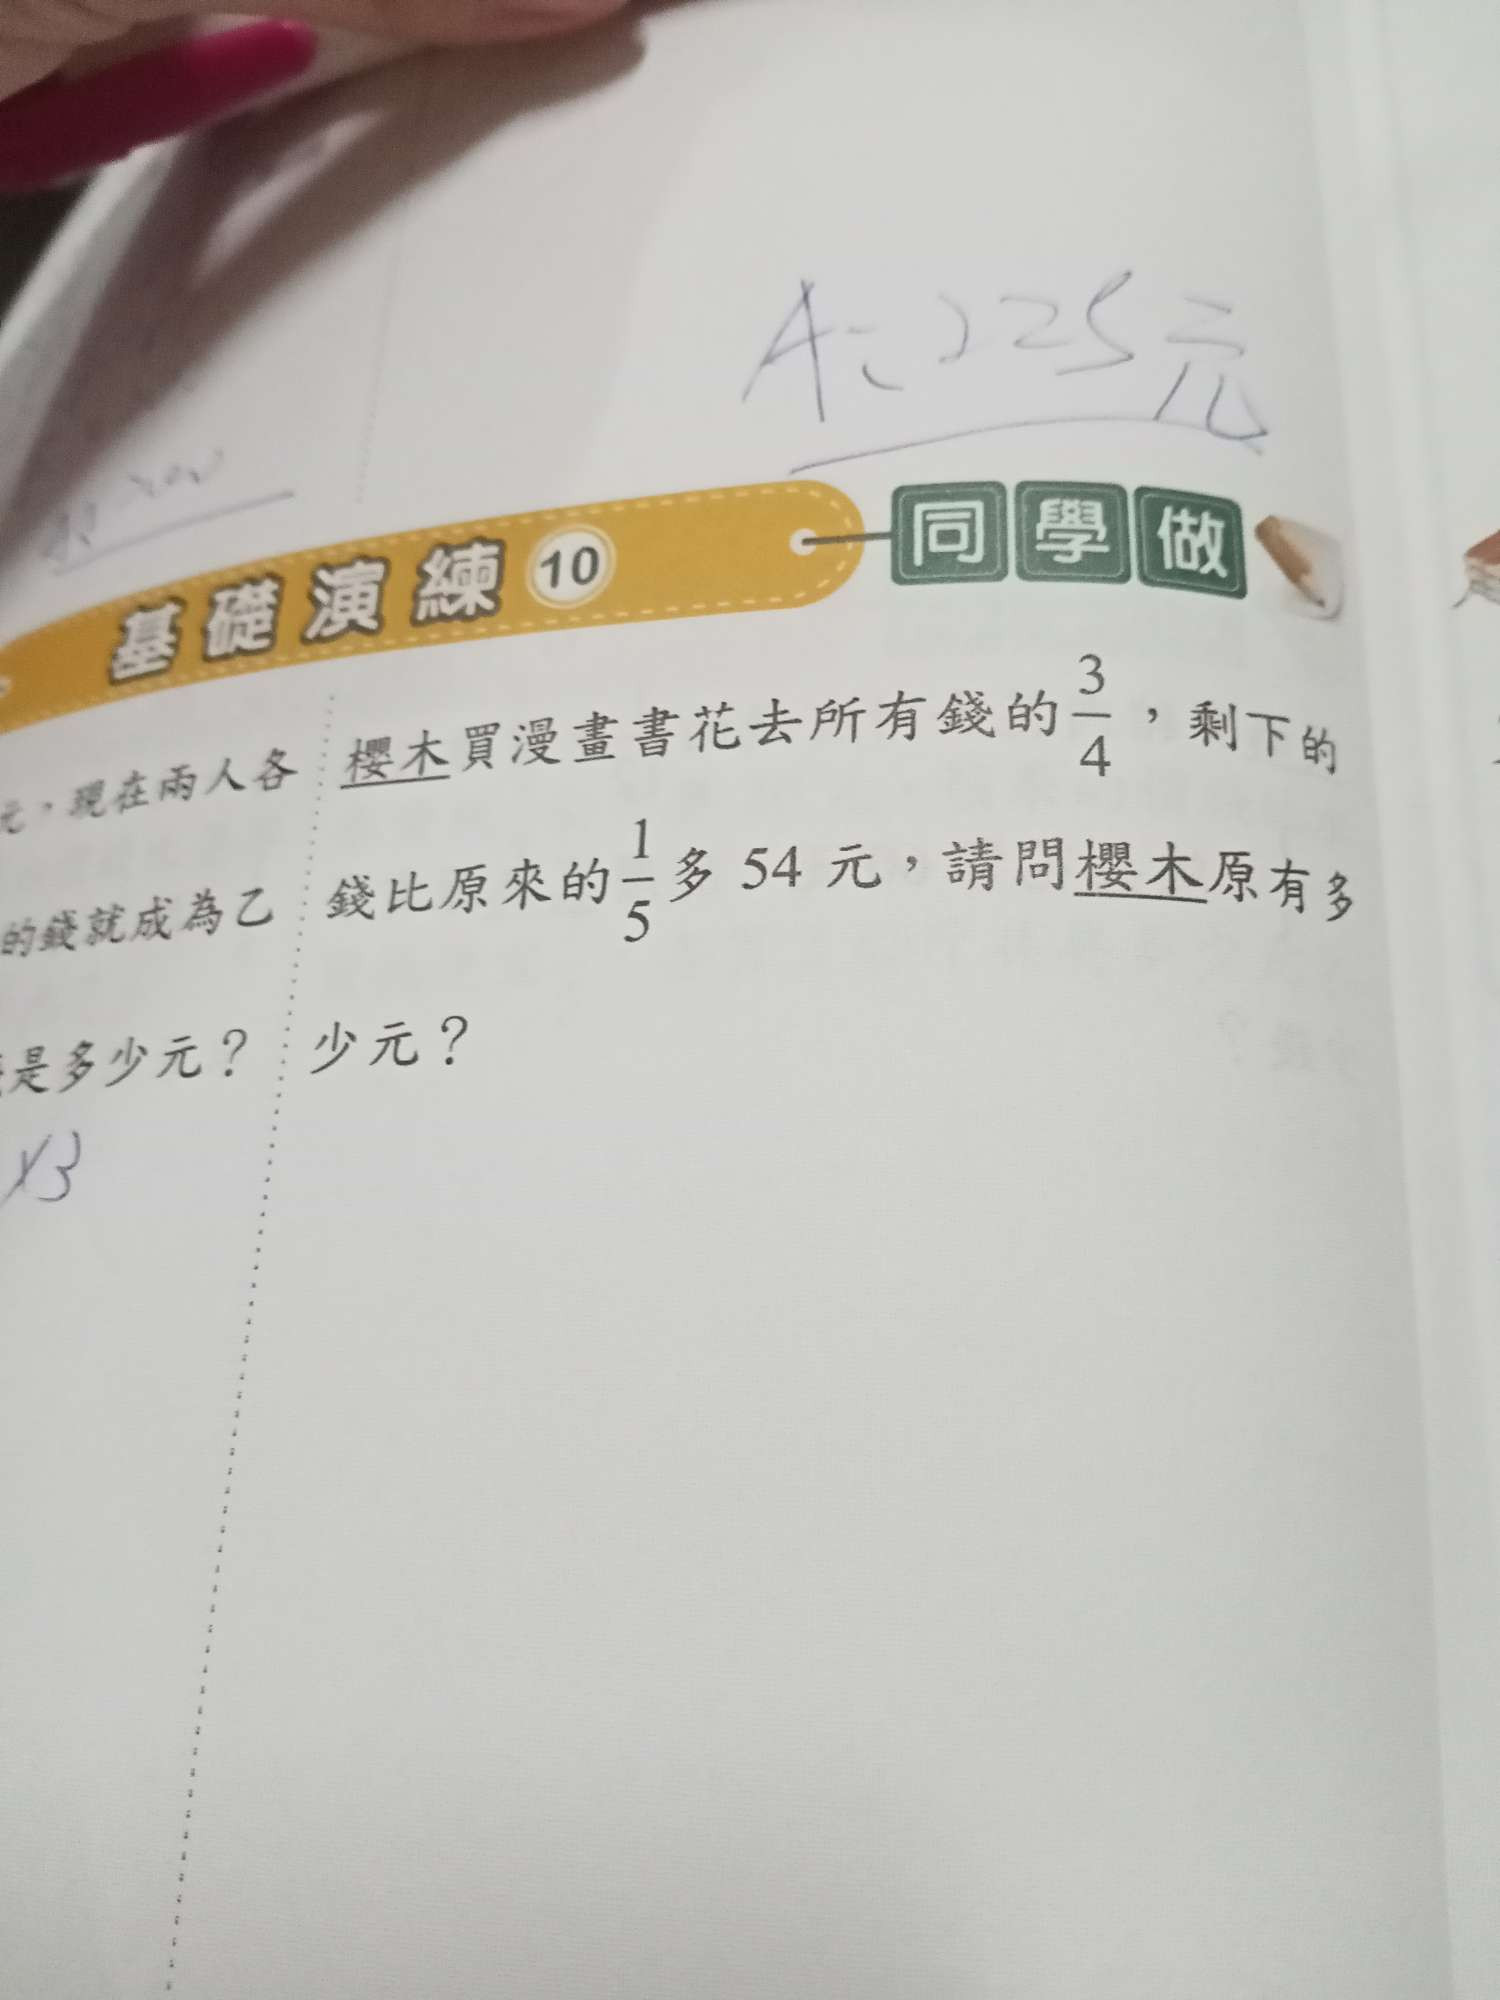 A: 225元
基礎演練 10 同學做
元，現在兩人各
的錢就成為乙
是多少元？
×3
櫻木買漫畫書花去所有錢的3/4，剩下的
錢比原來的1/5多 54 元，請問櫻木原有多
少元？